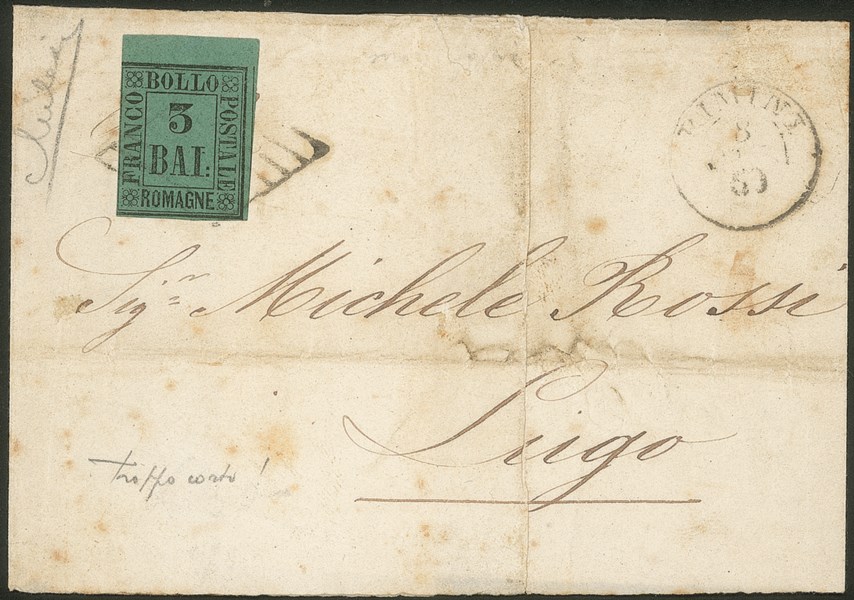 BOLLO
FRANCO
3
BAI:
POSTALE
ROMAGNE
RIMINI
8
59
Sig.r Michele Rossi
Lugo
troppo corto!